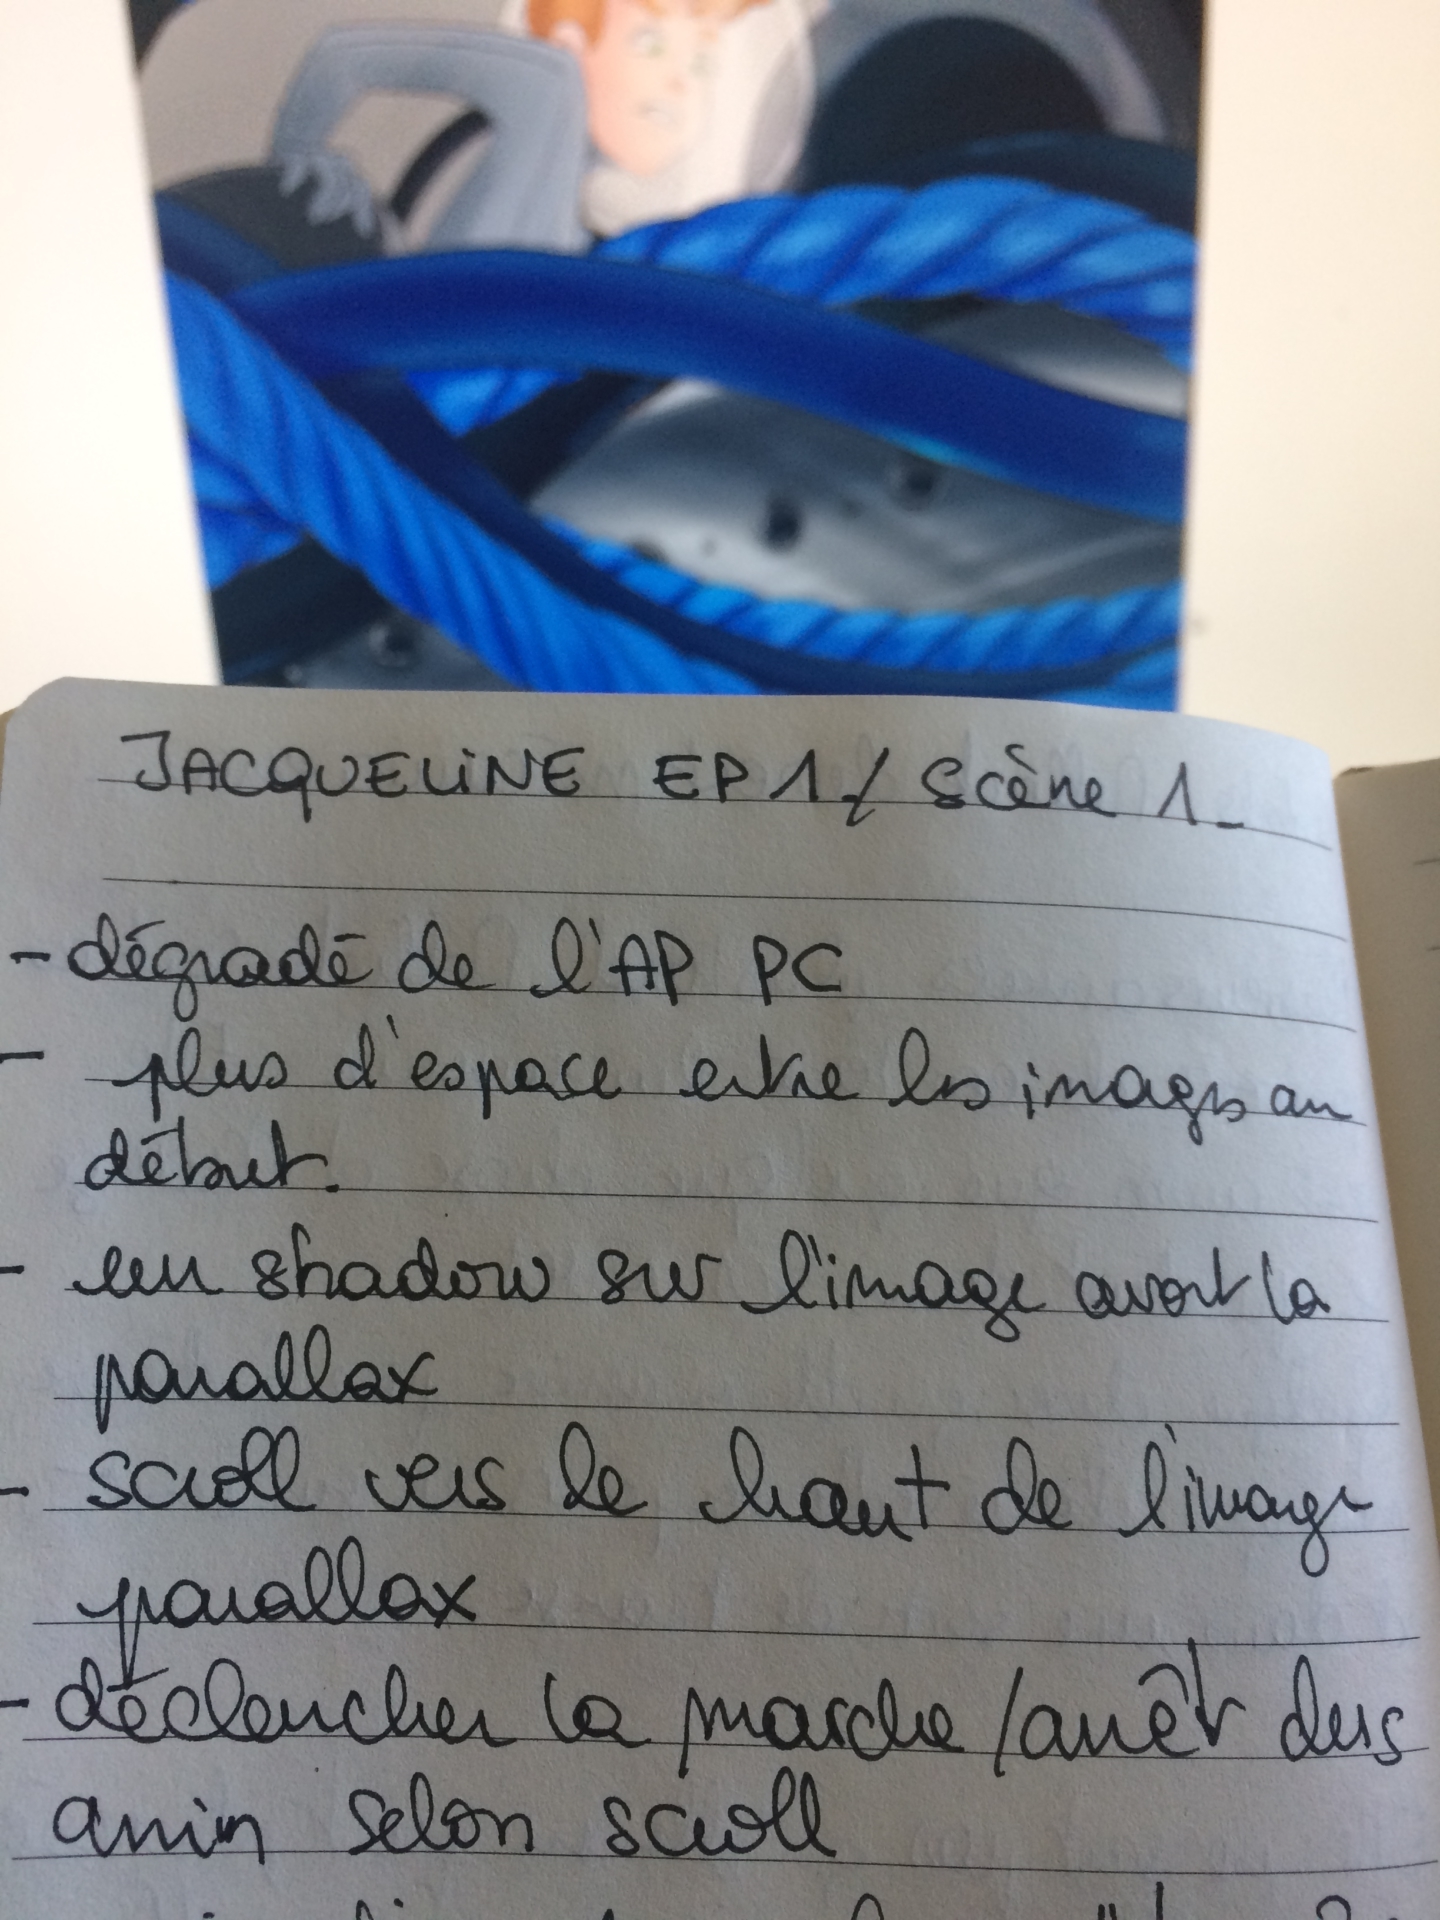 JACQUELINE EP 1 / Scène 1_
- dégradé de l'AP PC
- plus d'espace entre les images au
début.
- un shadow sur l'image avant la
parallax
- scroll vers le haut de l'image
parallax
- déclencher la marche / arrêt des
anim selon scroll